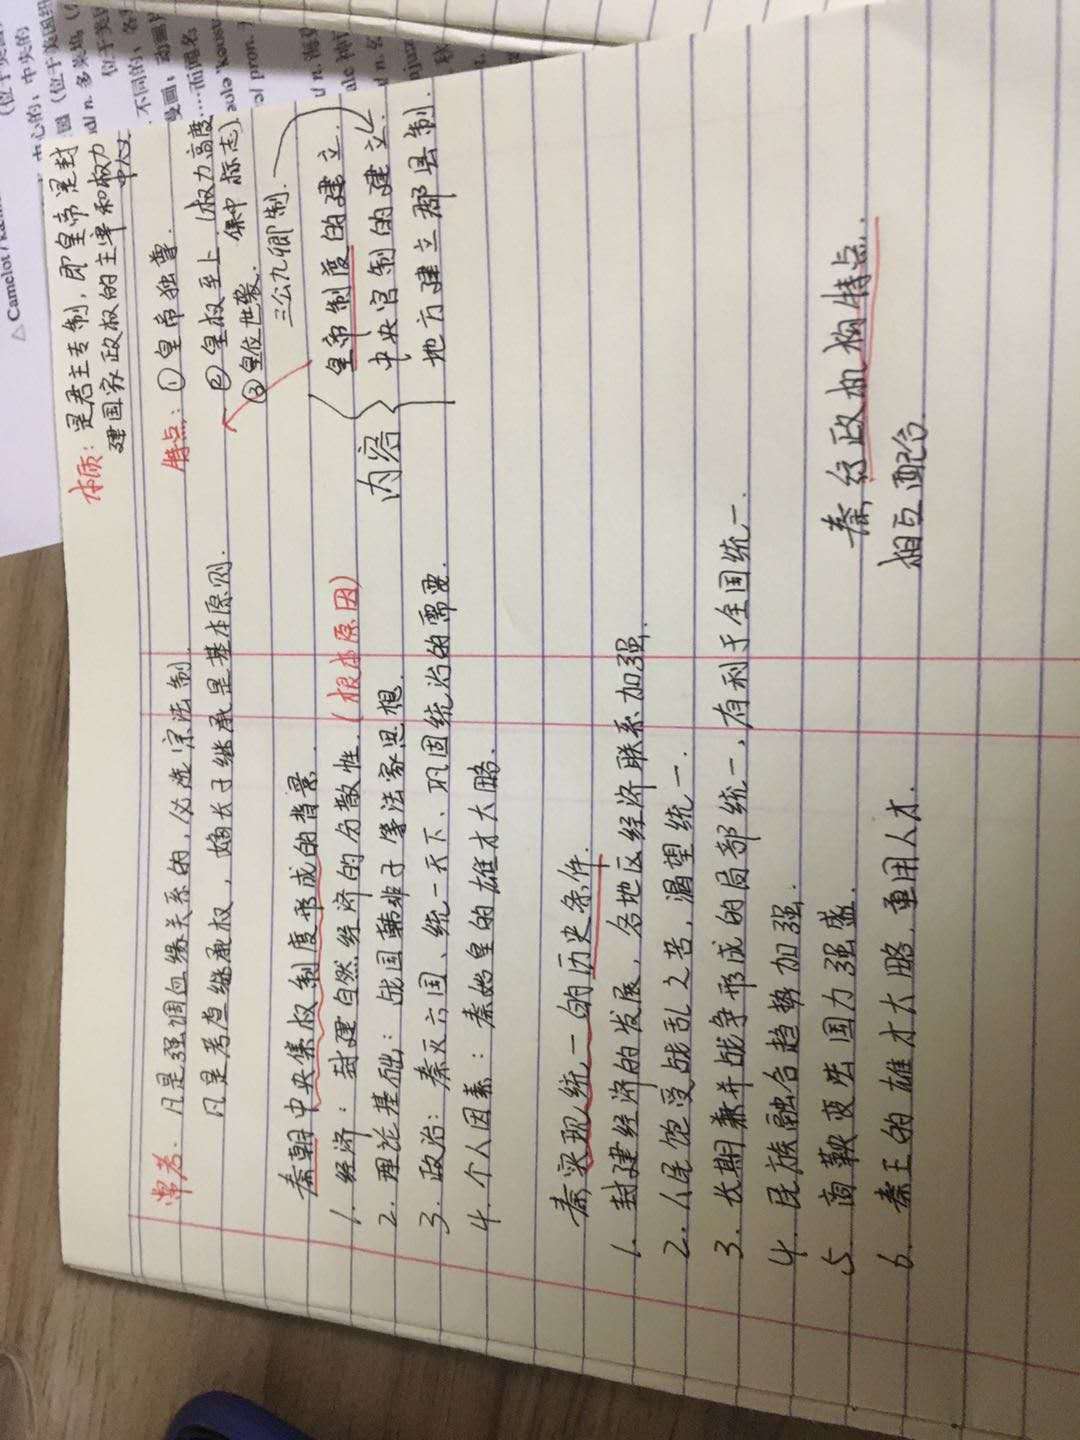 常考：凡是强调血缘关系的，必选宗法制.
凡是考查继承权，嫡长子继承是基本原则.
秦朝中央集权制度形成的背景
1. 经济：封建自然经济的分散性.（根本原因）
2. 理论基础：战国韩非子等法家思想.
3. 政治：秦灭六国、统一天下、巩固统治的需要.
4. 个人因素：秦始皇的雄才大略.
秦实现统一的历史条件.
1. 封建经济的发展，各地区经济联系加强.
2. 人民饱受战乱之苦，渴望统一.
3. 长期兼并战争形成的局部统一，有利于全国统一.
4. 民族融合趋势加强.
5. 商鞅变法国力强盛.
6. 秦王的雄才大略，重用人才.
本质：是君主专制，即皇帝是封
建国家政权的主宰和权力
中心
特点：①皇帝独尊.
②皇权至上（权力高度
集中标志）
③皇位世袭.
三公九卿制.
内容
皇帝制度的建立.
中央官制的建立.
地方建立郡县制.
秦行政机构特点.
相互配合.
△ Camelot